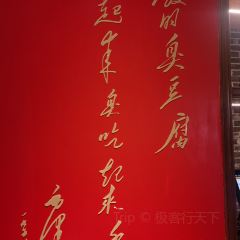 的臭豆腐
起来臭吃起来
毛泽
Trip © 极客行天下